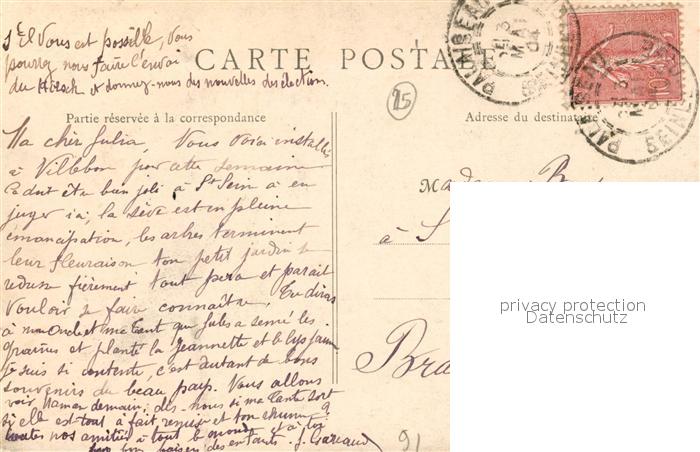 S'il Vous est possible, Vous
pouvez nous faire l'envoi
du et donnez-nous des nouvelles des élection.
CARTE POSTALE
25
PALAISEAU
SEINE-ET-OISE
10
Partie réservée à la correspondance
Adresse du destinataire
Ma cher Julia, Vous voici installés
à Villebon pour cette semaine
Ce doit être bien joli à St a en
juger ici, la sève est en pleine
émancipation, les arbres terminent
leur fleuraison ton petit jardin se
redresse fièrement tout pera et parait
Vouloir se faire connaître. Tu diras
à mon Oncle et ma tant que Jules a semé les
graines et planté la Jeannette et le lys jaune
je suis si contente, c'est autant de bons
souvenirs du beau pays. Vous allons
voir Maman demain, dis-nous si ma tante sort
si elle est tout à fait remise et ton
toutes nos amitiés à tout le monde et à toi
bon baiser des enfants. J.
Mada
à S
Bra
91
privacy protection
Datenschutz